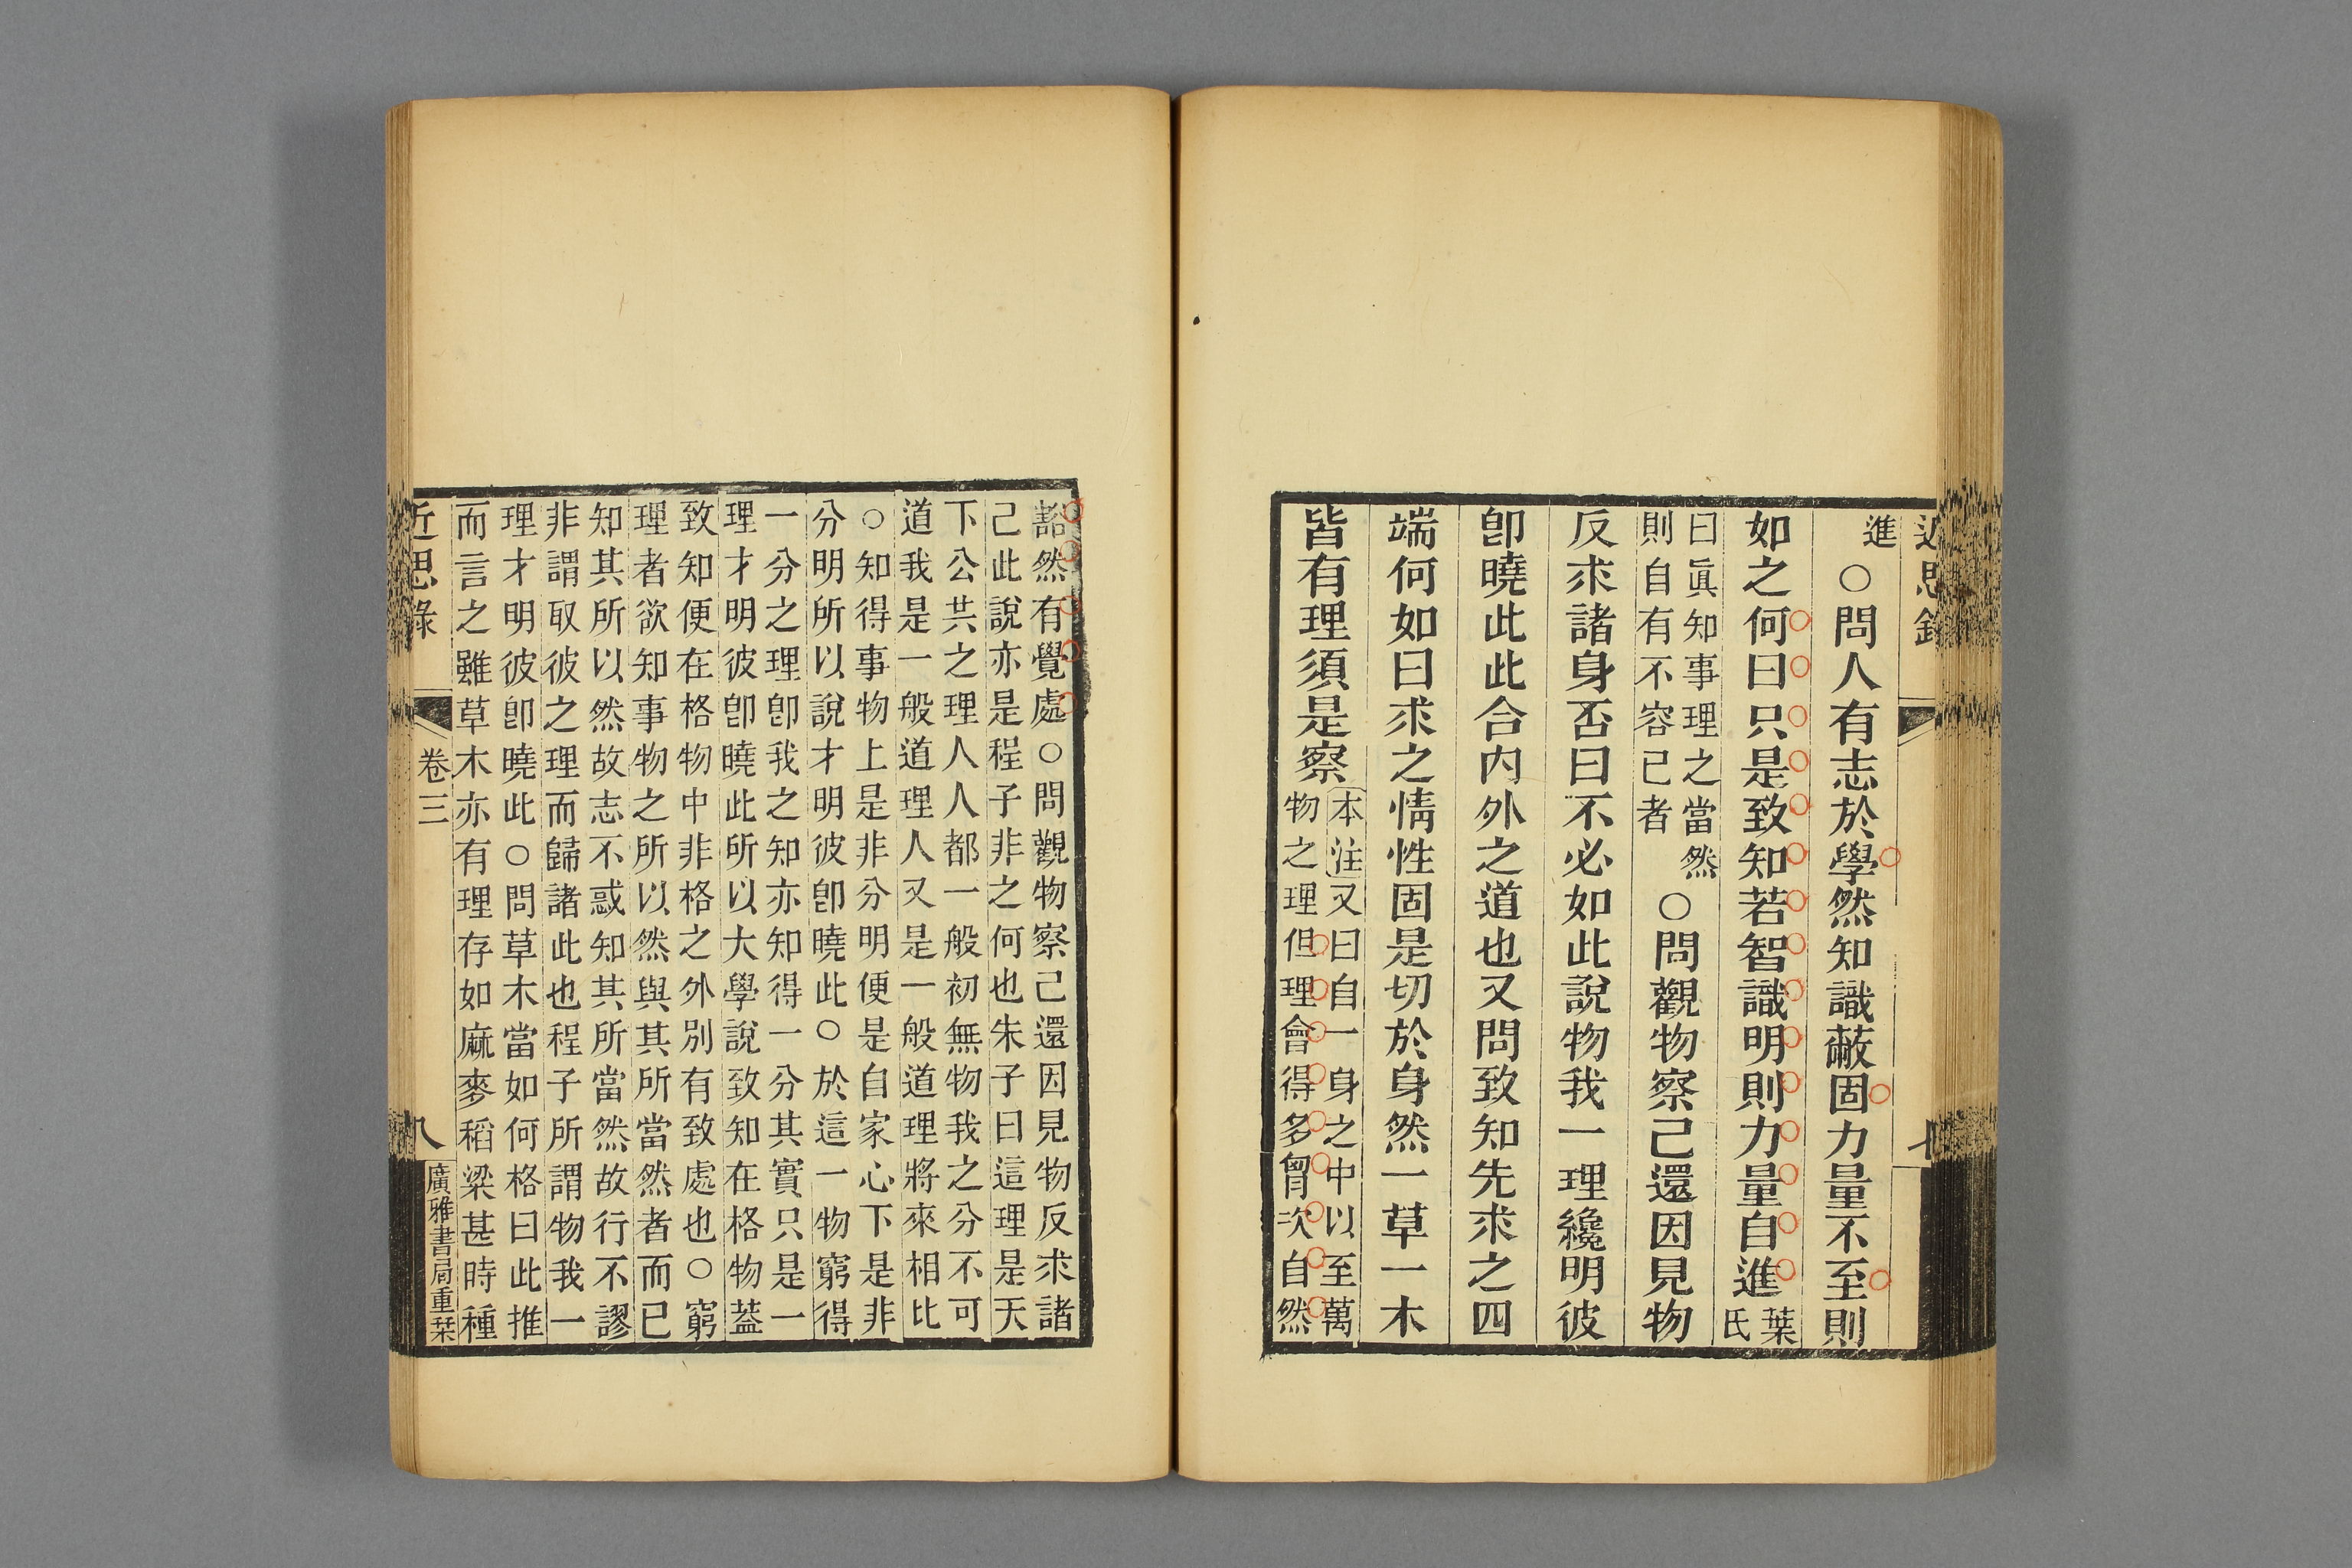 近思錄
進○問人有志於學然知識蔽固力量不至則
如之何曰只是致知若智識明則力量自進葉氏
曰眞知事理之當然
則自有不容已者
○問觀物察己還因見物
反求諸身否曰不必如此說物我一理纔明彼
卽曉此此合内外之道也又問致知先求之四
端何如曰求之情性固是切於身然一草一木
皆有理須是察
本注又曰自一身之中以至萬
物之理但理會得多胷次自然
豁然有覺處○問觀物察己還因見物反求諸
己此說亦是程子非之何也朱子曰這理是天
下公共之理人人都一般初無物我之分不可
道我是一般道理人又是一般道理將來相比
○知得事物上是非分明便是自家心下是非
分明所以說才明彼卽曉此○於這一物窮得
一分之理卽我之知亦知得一分其實只是一
理才明彼卽曉此所以大學說致知在格物蓋
致知便在格物中非格之外別有致處也○窮
理者欲知事物之所以然與其所當然者而已
知其所以然故志不惑知其所當然故行不謬
非謂取彼之理而歸諸此也程子所謂物我一
理才明彼卽曉此○問草木當如何格曰此推
而言之雖草木亦有理存如麻麥稻梁甚時種
近思錄 卷三 八 廣雅書局重栞